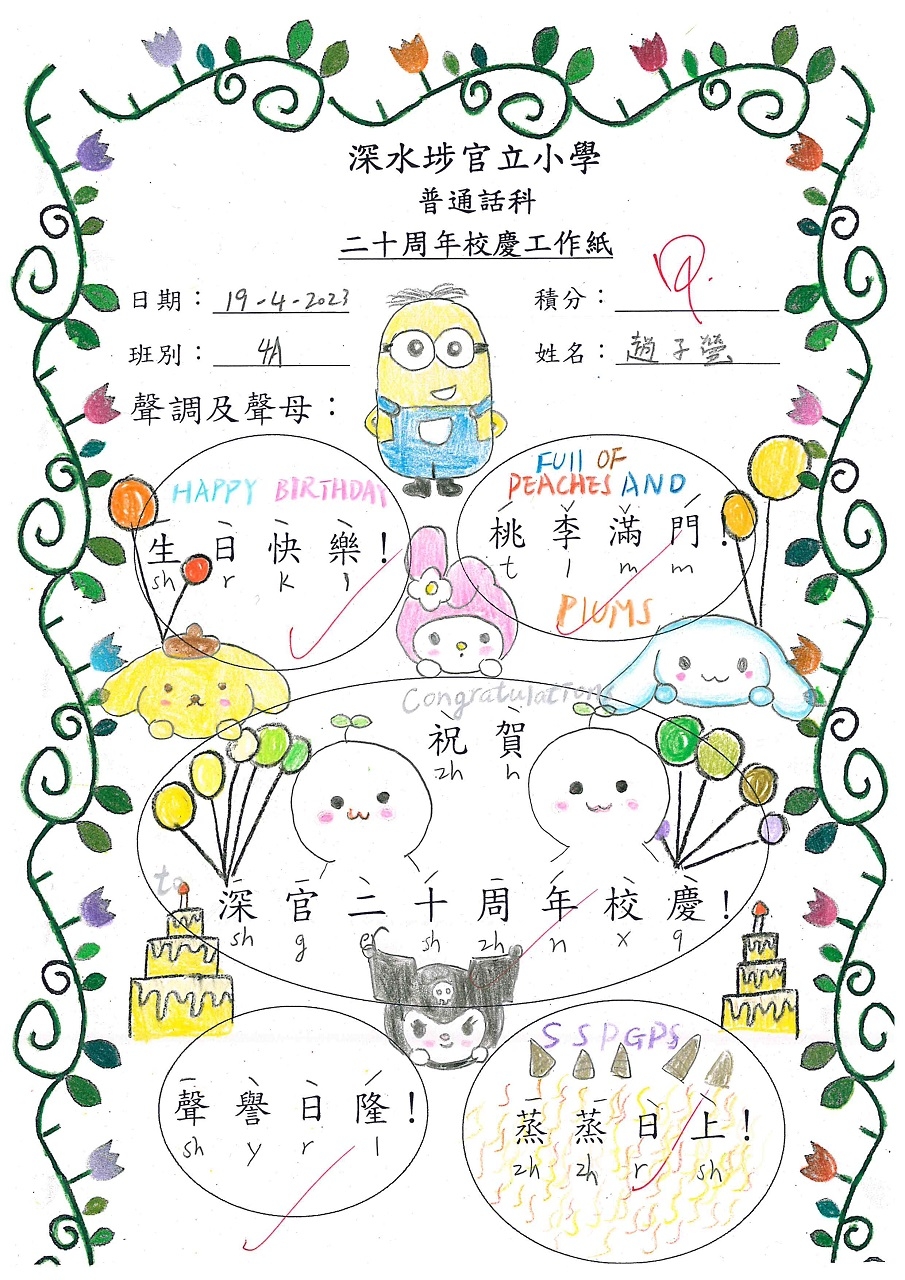 深水埗官立小學
普通話科
二十周年校慶工作紙
日期： 19-4-2023
積分：
班別： 4A
姓名： 趙子螢
聲調及聲母：
HAPPY BIRTHDAY
生日快樂！
sh r k l
FUll OF
PEACHES AND
桃李滿門！
t l m m
PlUMS
Congratulations
祝賀
zh h
to
深官二十周年校慶！
sh g er sh zh n x q
聲譽日隆！
sh y r l
SSPGPS
蒸蒸日上！
zh zh r sh